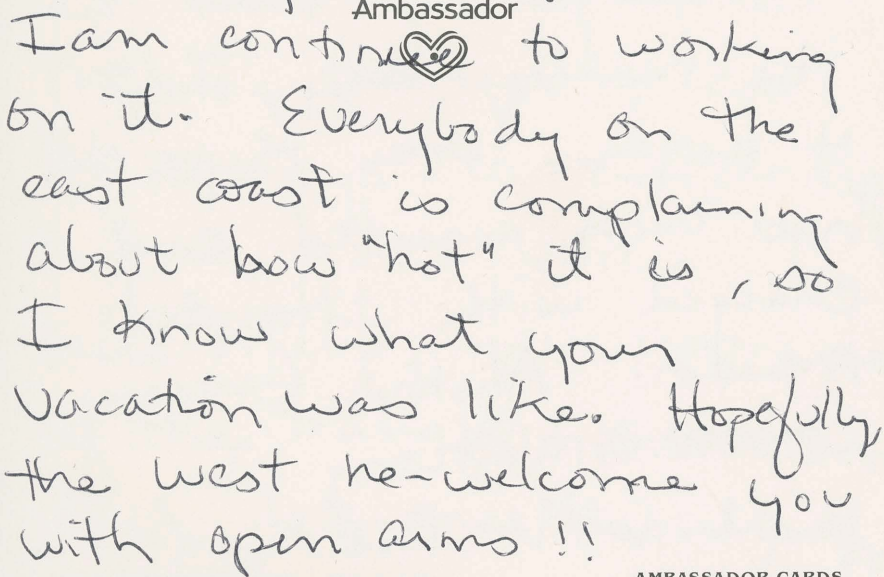 Ambassador
I am continue to working
on it. Everybody on the
east coast is complaining
about how "hot" it is, so
I know what your
vacation was like. Hopefully
the west re-welcome you
with open arms !!
AMBASSADOR CARDS